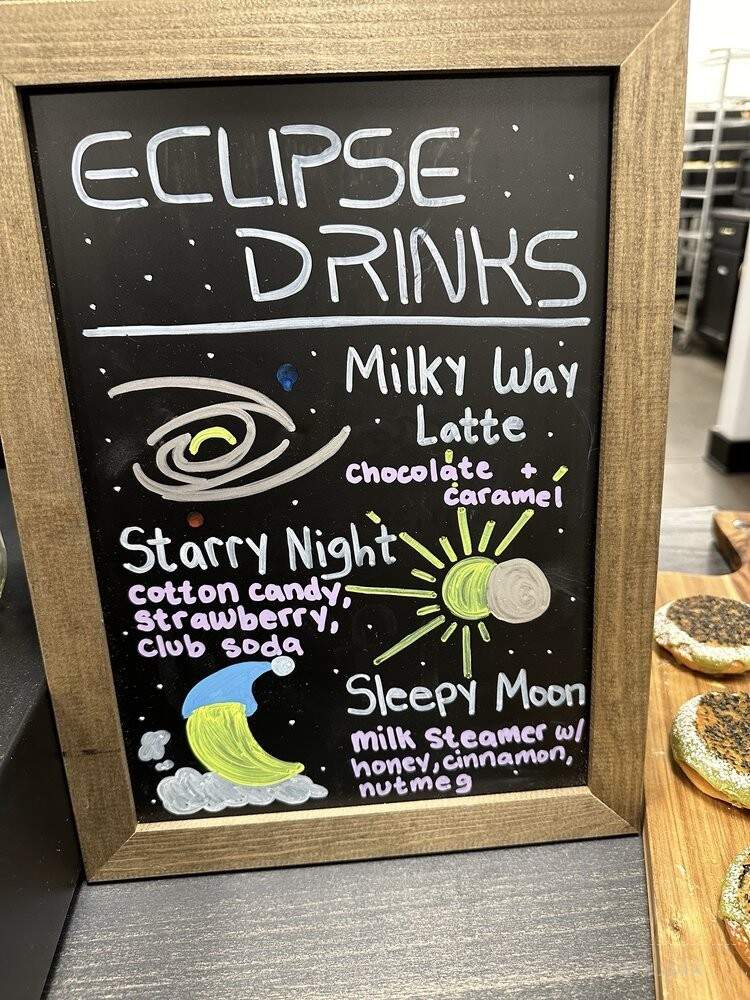 ECLIPSE
DRINKS
Milky Way
Latte
chocolate +
caramel
Starry Night
cotton candy,
strawberry,
club soda
Sleepy Moon
milk steamer w/
honey, cinnamon,
nutmeg